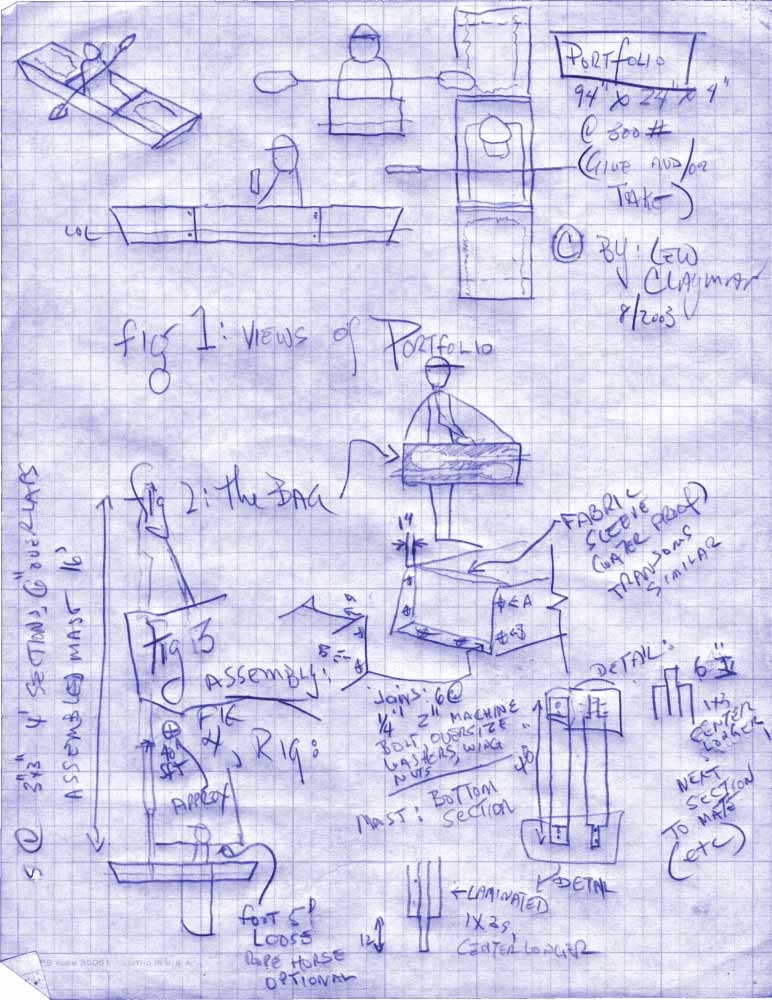 PORTFOLIO
94" X 24" X 9"
@ 300 #
(GIVE AND/OR
TAKE)
© BY: LEW
CLAYMAN
8/2003
LOL
fig 1: VIEWS of PORTFOLIO
fig 2: the BAG
FABRIC
SLEEVE
(WATER PROOF)
TRANSOMS
SIMILAR
1"
A
B
fig 3
ASSEMBLY:
JOINS: 6 @
1/4" 2" MACHINE
BOLT OVERSIZE
WASHERS, WING
NUTS
FIG
4, RIG:
APPROX
MAST: BOTTOM
SECTION
DETAIL:
6"
1X3
CENTER
LONGER
NEXT
SECTION
TO MATE
(etc)
48"
DETAIL
LAMINATED
1X3s,
CENTER LONGER
12
FOOT
LOOSE
ROPE HORSE
OPTIONAL
5 @ 3"x3" 4' SECTIONS, 6" OVERLAPS
ASSEMBLED MAST 16'